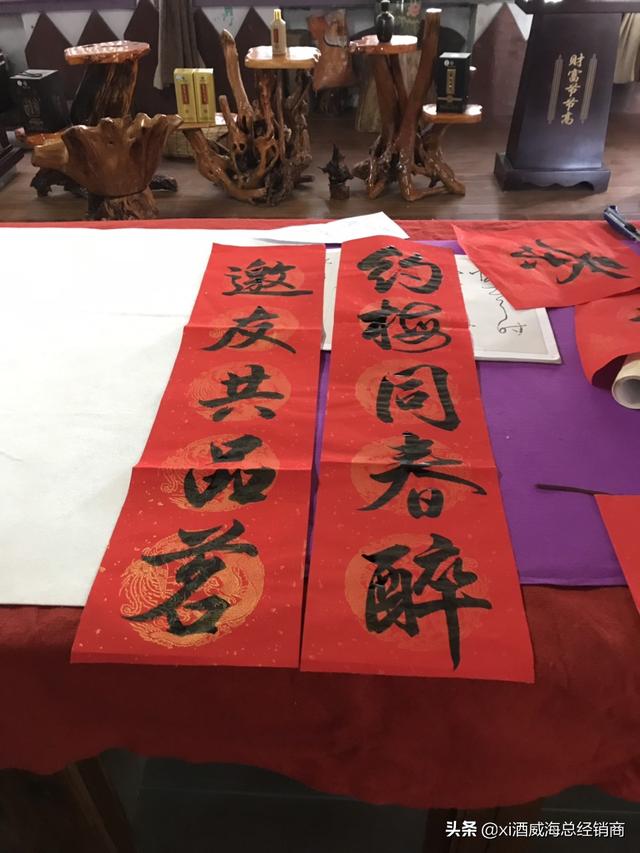 约梅同春醉
邀友共品茗
财富节节高
头条 @xi酒威海总经销商